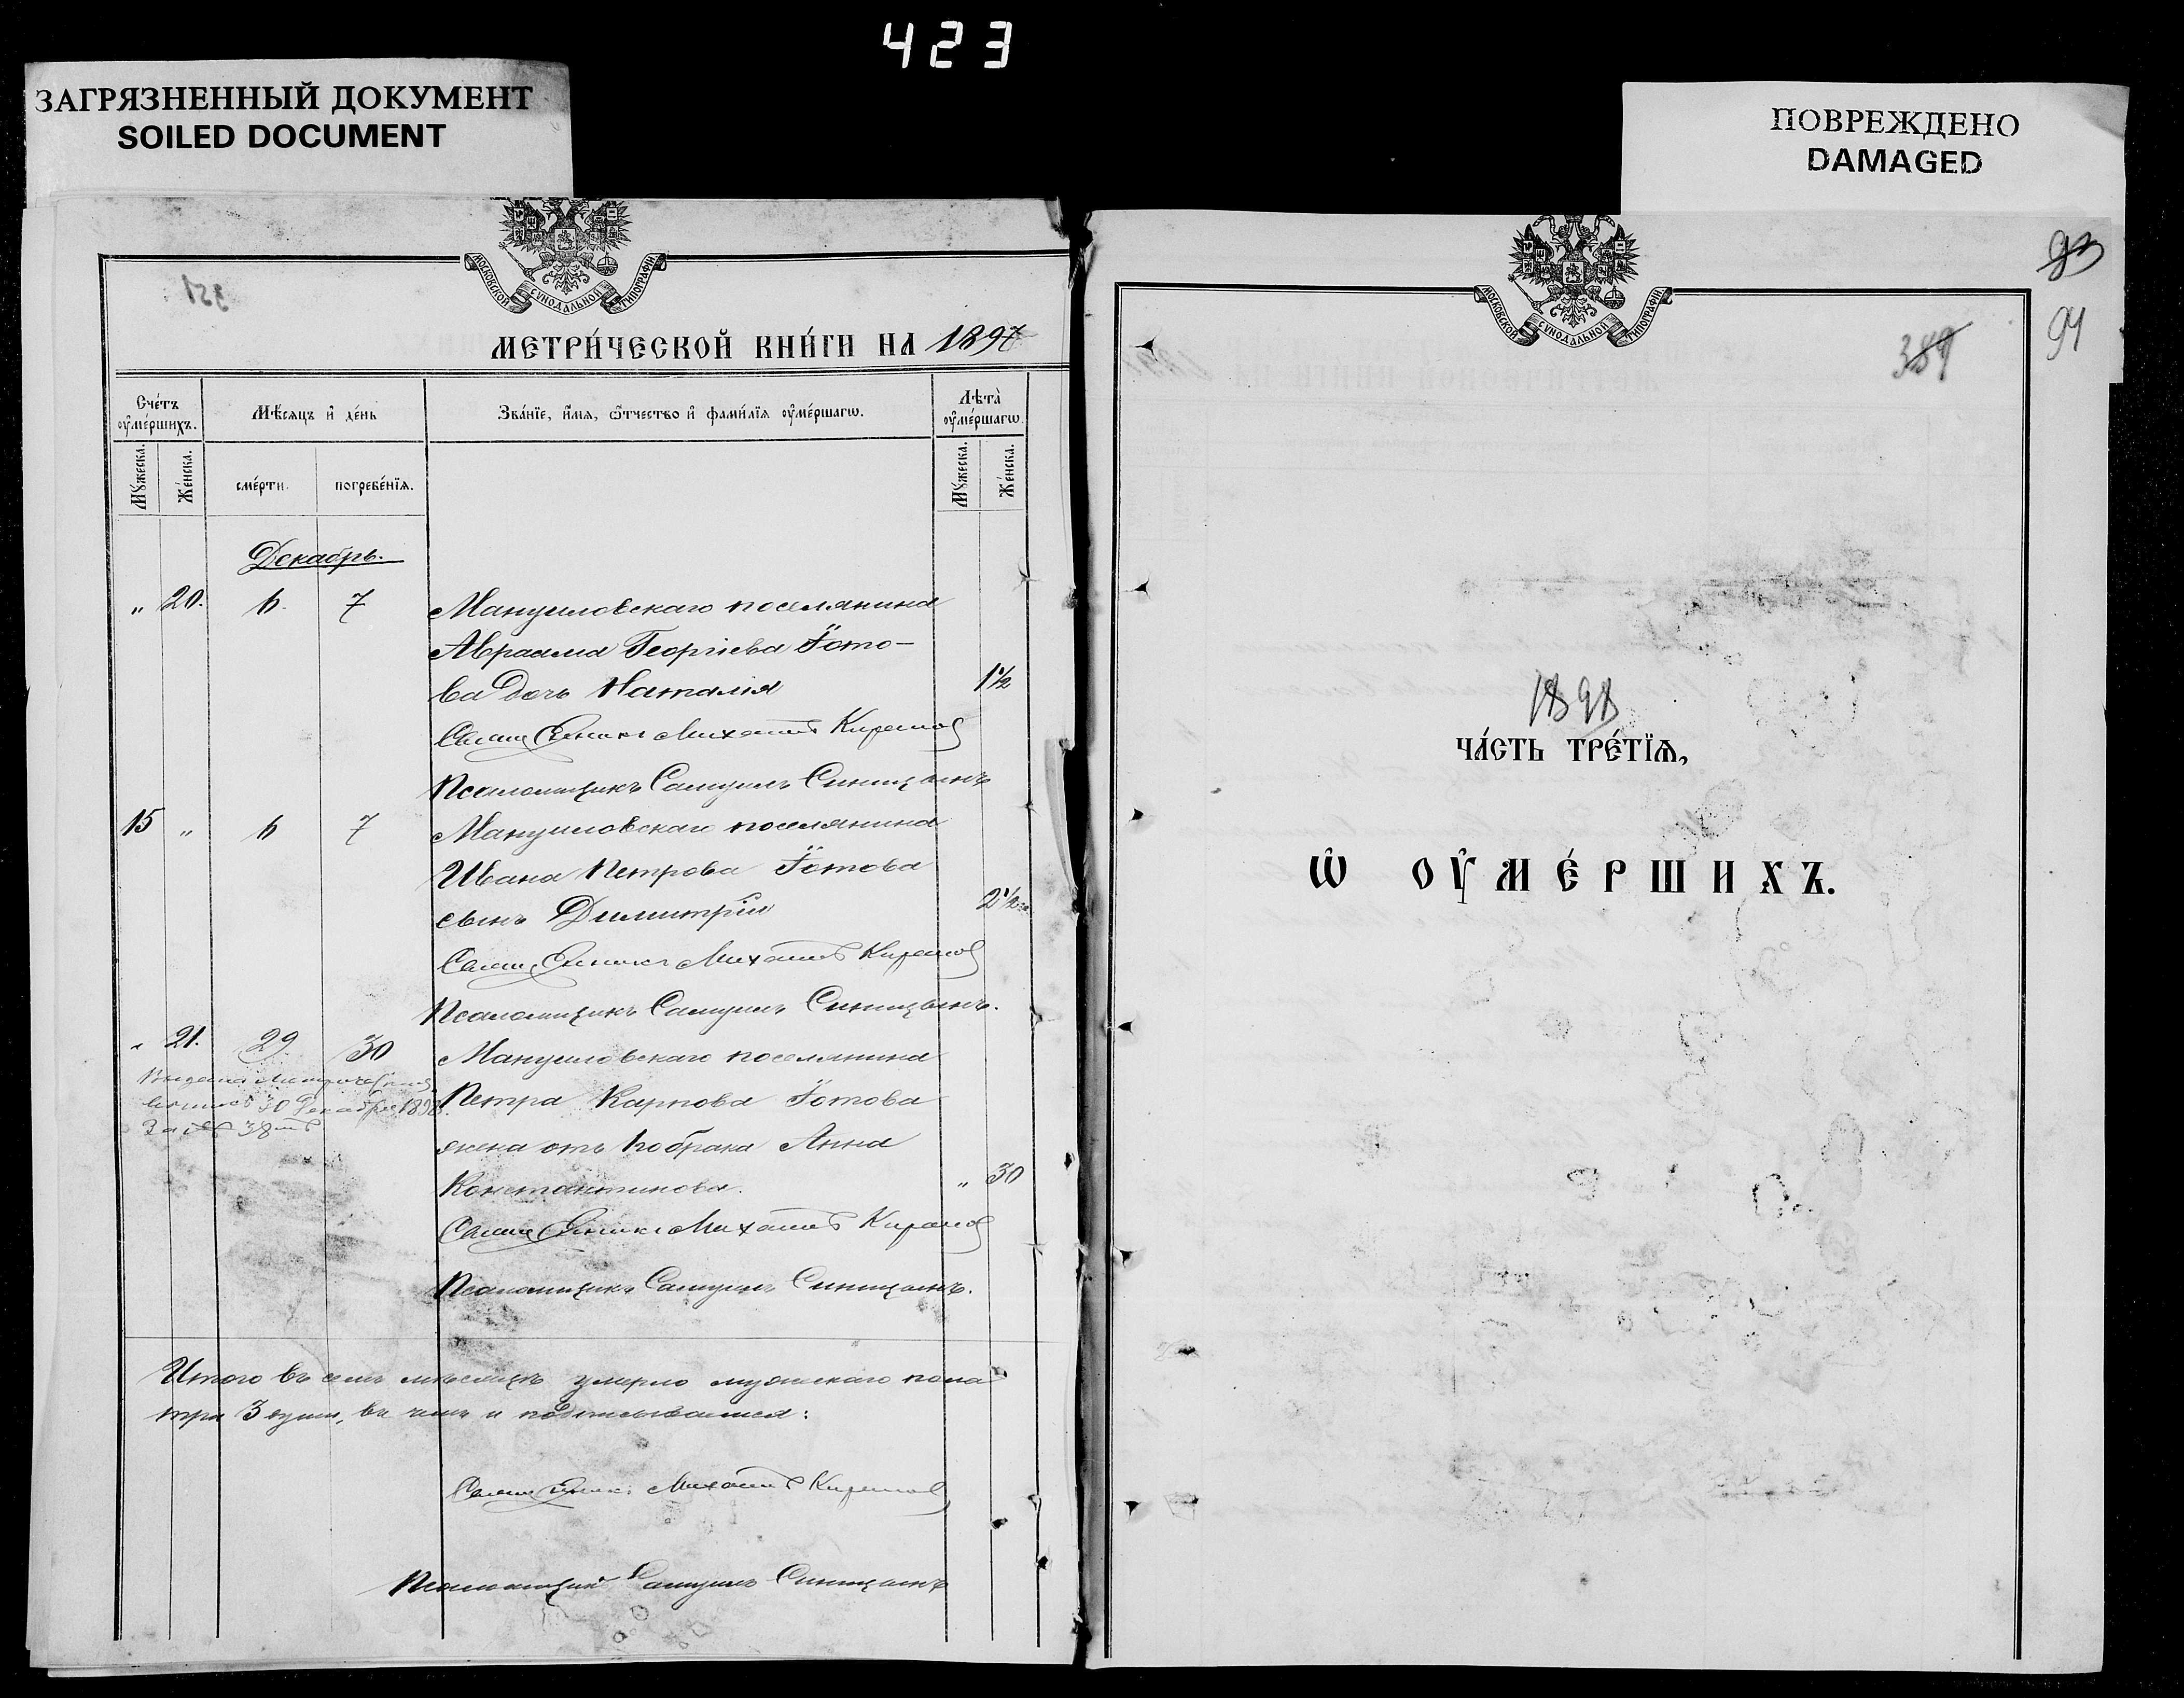 423
ЗАГРЯЗНЕННЫЙ ДОКУМЕНТ
SOILED DOCUMENT
ПОВРЕЖДЕНО
DAMAGED
МОСКОВСКОЙ СѴНОДАЛЬНОЙ ТИПОГРАФІИ
МЕТРИ́ЧЕСКОЙ КНИ́ГИ НА 1897
Сче́тъ оу҆ме́ршихъ.
Мѣ́сяцъ и҆ де́нь
Зва́нїе, и҆́мя, ѻ҆́тчество и҆ фами́лїя оу҆ме́ршагѡ.
Лѣта̀ оу҆ме́ршагѡ.
Му́жеска.
Же́нска.
сме́рти.
погребе́нїя.
Му́жеска.
Же́нска.
Декабрь.
" 20. 6. 7 Мануиловскаго поселянина
Авраама Георгіева Гото-
ва дочь Наталія 1 1/2
Свящ Михаилъ Киранов
Псаломщикъ Самуилъ Синицынъ
15 " 6 7 Мануиловскаго поселянина
Ивана Петрова Готова
сынъ Димитрій 2 1/2
Свящ Михаилъ Киранов
Псаломщикъ Самуилъ Синицынъ.
" 21. 29 30 Мануиловскаго поселянина
Петра Карпова Готова
жена отъ 1го брака Анна
Константинова. " 30
Свящ Михаилъ Киранов
Псаломщикъ Самуилъ Синицынъ.
30 Декабря 1898
За № 38
Итого въ семъ мѣсяцѣ умерло мужескаго пола
три 3 души, въ чемъ и подписываемся:
Михаилъ Киранов
Псаломщикъ Самуилъ Синицынъ
МОСКОВСКОЙ СѴНОДАЛЬНОЙ ТИПОГРАФІИ
93
94
389
1898
ЧА́СТЬ ТРЕ́ТЇѦ,
Ѽ ОУ҆МЕ́РШИХЪ.